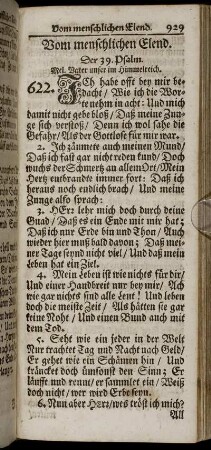 Vom menschlichen Elend. 929
Vom menschlichen Elend.
Der 39. Psalm.
Mel. Vater unser im Himmelreich.
622. Ich habe offt bey mir be-
dacht / Wie ich die Wor-
te nehm in acht: Und mich
damit nicht gebe bloß / Daß meine Zun-
ge sich verstoß / Denn ich wol sahe die
Gefahr / Als der Gottlose für mir war.
2. Ich zäumte auch meinen Mund /
Daß ich fast gar nicht reden kund / Doch
wuchs der Schmertz an allem Ort / Mein
Hertz entbrandte immer fort: Daß ich
heraus noch endlich brach / Und meine
Zunge also sprach:
3. HErr lehr mich doch durch deine
Gnad / Daß es ein Ende mit mir hat;
Daß ich nur Erde bin und Thon / Auch
wieder hier muß bald davon; Daß mei-
ner Tage seynd nicht viel / Und daß mein
Leben hat ein Ziel.
4. Mein Leben ist wie nichts für dir /
Und einer Handbreit nur bey mir / Ach
wie gar nichts sind alle Leut! Und leben
doch die meiste Zeit / Als hätten sie gar
keine Noht / Und einen Bund auch mit
dem Tod.
5. Seht wie ein jeder in der Welt
Nur trachtet Tag und Nacht nach Geld /
Er gehet wie ein Schämen hin / Und
kräncket doch ümsonst den Sinn; Er
läufft und rennt / er sammlet ein / Weiß
doch nicht / wer wird Erbe seyn.
6. Nun aber HErr / wes tröst ich mich?
All